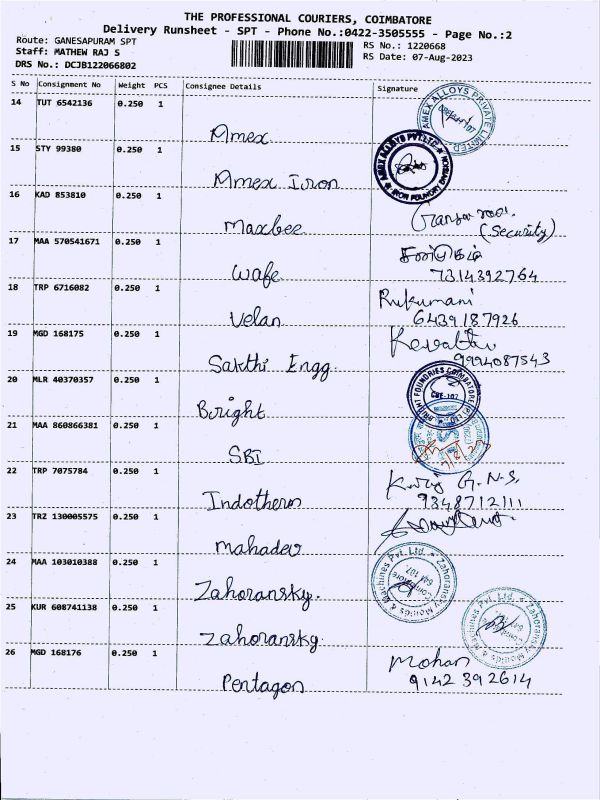 THE PROFESSIONAL COURIERS, COIMBATORE
Delivery Runsheet - SPT - Phone No.:0422-3505555 - Page No.:2
Route: GANESAPURAM SPT
Staff: MATHEW RAJ S
DRS No.: DCJB122066802
RS No.: 1220668
RS Date: 07-Aug-2023
S No Consignment No Weight PCS Consignee Details Signature
14 TUT 6542136 0.250 1 Amex
AMEX ALLOYS PRIVATE LIMITED
15 STY 99380 0.250 1 Amex Iron
AMEX ALLOYS PVT LTD IRON FOUNDRY DIVISION
16 KAD 853810 0.250 1 Maxbee
(Security)
17 MAA 570541671 0.250 1 Wafe
7314392764
18 TRP 6716082 0.250 1 Velan
Rukumani
6439187926
19 MGD 168175 0.250 1 Sakthi Engg.
9994087543
20 MLR 40370357 0.250 1 Bright
FOUNDRIES COIMBATORE (P) LTD
CBE-107
21 MAA 860866381 0.250 1 SBI
22 TRP 7075784 0.250 1 Indotherm
G.N.S.
9348712111
23 TRZ 130005575 0.250 1 Mahadev
24 MAA 103010388 0.250 1 Zahoransky.
Zahoransky Moulds & Machines Pvt. Ltd.
25 KUR 608741138 0.250 1 Zahoransky.
Zahoransky Moulds & Machines Pvt. Ltd.
26 MGD 168176 0.250 1 Pentagon
Mohan
9142 392614